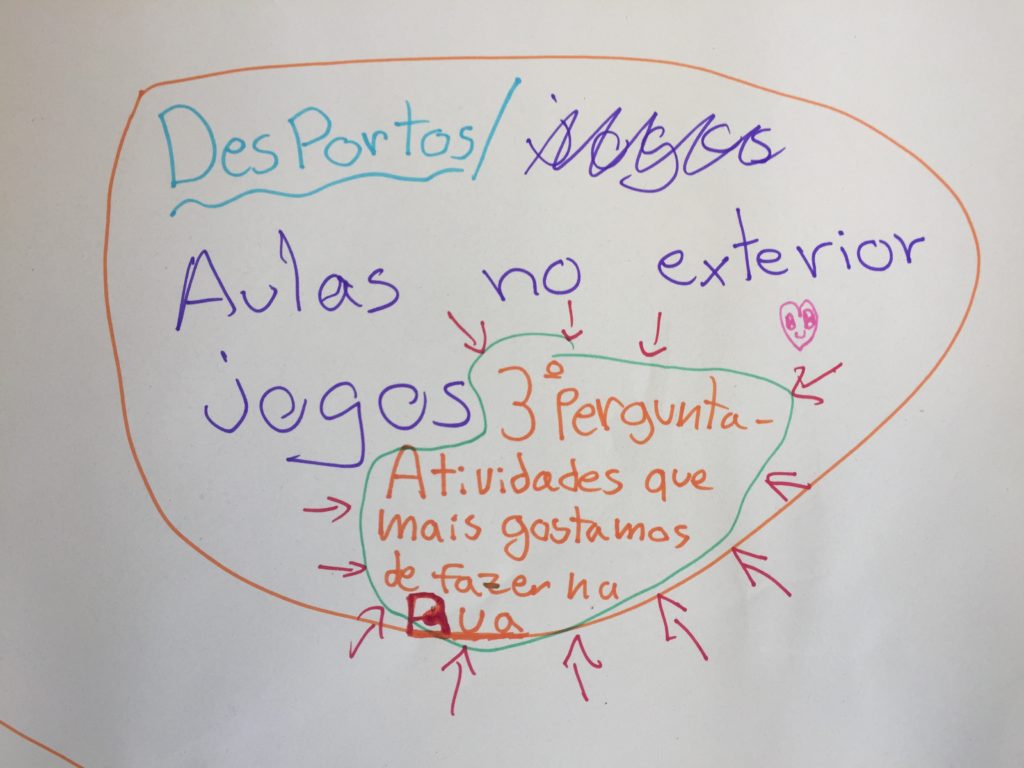 DesPortos/
Aulas no exterior
jogos
3º Pergunta-
Atividades que
mais gostamos
de fazer na
Rua